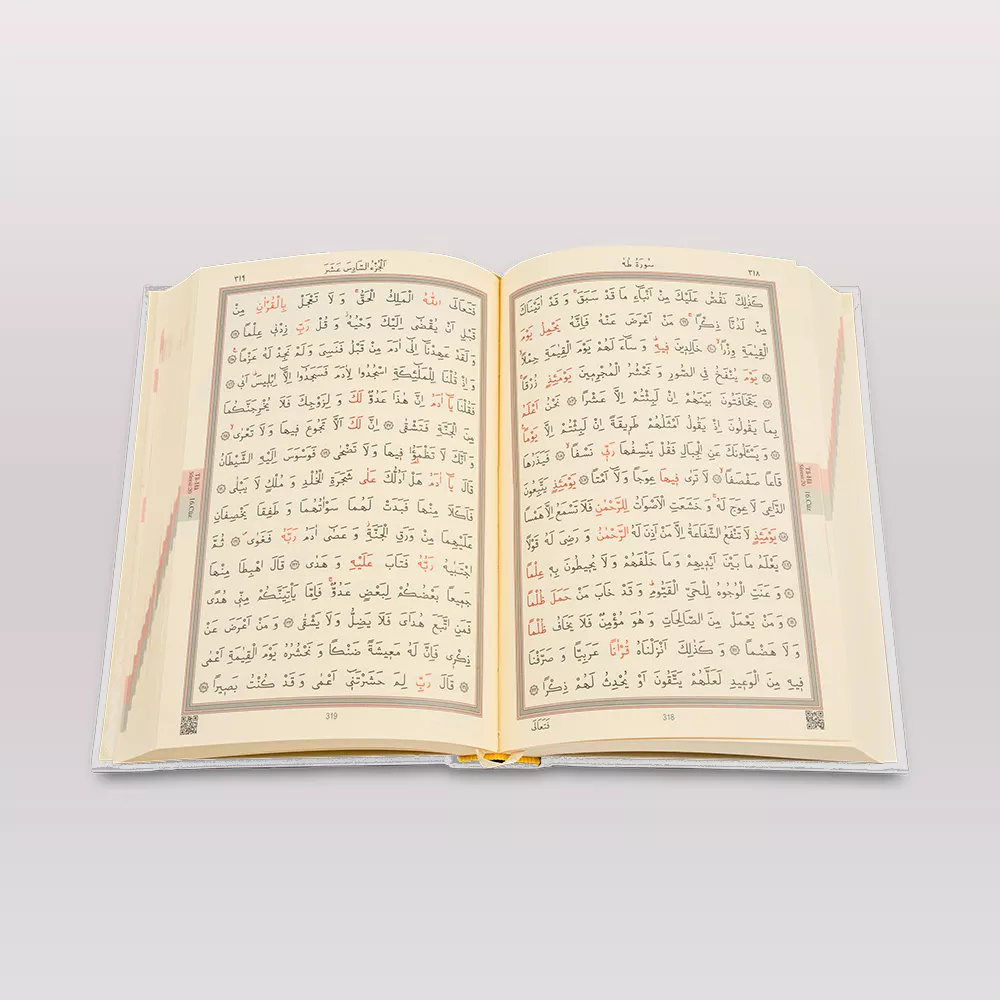 ٣١٨
سُورَةُ طٰهٰ
كَذٰلِكَ نَقُصُّ عَلَيْكَ مِنْ اَنْبَٓاءِ مَا قَدْ سَبَقَۚ وَ قَدْ اٰتَيْنَاكَ
مِنْ لَدُنَّا ذِكْرًاۚ ۝ مَنْ اَعْرَضَ عَنْهُ فَاِنَّهُ يَحْمِلُ يَوْمَ
الْقِيٰمَةِ وِزْرًاۙ ۝ خَالِدِينَ فِيهِۜ وَ سَٓاءَ لَهُمْ يَوْمَ الْقِيٰمَةِ حِمْلًاۙ
۝ يَوْمَ يُنْفَخُ فِي الصُّورِ وَ نَحْشُرُ الْمُجْرِمِينَ يَوْمَئِذٍ زُرْقًاۚ
۝ يَتَخَافَتُونَ بَيْنَهُمْ اِنْ لَبِثْتُمْ اِلَّا عَشْرًا ۝ نَحْنُ اَعْلَمُ
بِمَا يَقُولُونَ اِذْ يَقُولُ اَمْثَلُهُمْ طَرِيقَةً اِنْ لَبِثْتُمْ اِلَّا يَوْمًاۚ
۝ وَ يَسْـَٔلُونَكَ عَنِ الْجِبَالِ فَقُلْ يَنْسِفُهَا رَبِّي نَسْفًاۙ ۝ فَيَذَرُهَا
قَاعًا صَفْصَفًاۙ ۝ لَا تَرٰى فِيهَا عِوَجًا وَلَٓا اَمْتًاۜ ۝ يَوْمَئِذٍ يَتَّبِعُونَ
الدَّاعِيَ لَا عِوَجَ لَهُۚ وَ خَشَعَتِ الْاَصْوَاتُ لِلرَّحْمٰنِ فَلَا تَسْمَعُ اِلَّا هَمْسًا
۝ يَوْمَئِذٍ لَا تَنْفَعُ الشَّفَاعَةُ اِلَّا مَنْ اَذِنَ لَهُ الرَّحْمٰنُ وَ رَضِيَ لَهُ قَوْلًا
۝ يَعْلَمُ مَا بَيْنَ اَيْدِيهِمْ وَ مَا خَلْفَهُمْ وَ لَا يُحِيطُونَ بِهِ عِلْمًا
۝ وَ عَنَتِ الْوُجُوهُ لِلْحَيِّ الْقَيُّومِۜ وَ قَدْ خَابَ مَنْ حَمَلَ ظُلْمًا
۝ وَ مَنْ يَعْمَلْ مِنَ الصَّالِحَاتِ وَ هُوَ مُؤْمِنٌ فَلَا يَخَافُ ظُلْمًا
وَ لَا هَضْمًا ۝ وَ كَذٰلِكَ اَنْزَلْنَاهُ قُرْاٰنًا عَرَبِيًّا وَ صَرَّفْنَا
فِيهِ مِنَ الْوَعِيدِ لَعَلَّهُمْ يَتَّقُونَ اَوْ يُحْدِثُ لَهُمْ ذِكْرًا ۝
318
فَتَعَالَى
Tâ-Hâ
Sûresi:20
16.Cüz
الْجُزْءُ السَّادِسَ عَشَرَ
٣١٩
فَتَعَالَى اللّٰهُ الْمَلِكُ الْحَقُّۚ وَ لَا تَعْجَلْ بِالْقُرْاٰنِ مِنْ
قَبْلِ اَنْ يُقْضٰٓى اِلَيْكَ وَحْيُهُۘ وَ قُلْ رَبِّ زِدْنِي عِلْمًا ۝
وَ لَقَدْ عَهِدْنَٓا اِلٰٓى اٰدَمَ مِنْ قَبْلُ فَنَسِيَ وَلَمْ نَجِدْ لَهُ عَزْمًا۟ ۝
وَ اِذْ قُلْنَا لِلْمَلٰٓئِكَةِ اسْجُدُوا لِاٰدَمَ فَسَجَدُٓوا اِلَّٓا اِبْلِيسَۜ اَبٰى ۝
فَقُلْنَا يَٓا اٰدَمُ اِنَّ هٰذَا عَدُوٌّ لَكَ وَ لِزَوْجِكَ فَلَا يُخْرِجَنَّكُمَا
مِنَ الْجَنَّةِ فَتَشْقٰى ۝ اِنَّ لَكَ اَلَّا تَجُوعَ فِيهَا وَ لَا تَعْرٰىۙ ۝
وَ اَنَّكَ لَا تَظْمَؤُ۬ا فِيهَا وَلَا تَضْحٰى ۝ فَوَسْوَسَ اِلَيْهِ الشَّيْطَانُ
قَالَ يَٓا اٰدَمُ هَلْ اَدُلُّكَ عَلٰى شَجَرَةِ الْخُلْدِ وَ مُلْكٍ لَا يَبْلٰى ۝
فَاَكَلَا مِنْهَا فَبَدَتْ لَهُمَا سَوْاٰتُهُمَا وَ طَفِقَا يَخْصِفَانِ
عَلَيْهِمَا مِنْ وَرَقِ الْجَنَّةِۘ وَ عَصٰٓى اٰدَمُ رَبَّهُ فَغَوٰىۖ ۝ ثُمَّ
اجْتَبٰيهُ رَبُّهُ فَتَابَ عَلَيْهِ وَ هَدٰى ۝ قَالَ اهْبِطَا مِنْهَا
جَمِيعًا بَعْضُكُمْ لِبَعْضٍ عَدُوٌّۚ فَاِمَّا يَاْتِيَنَّكُمْ مِنِّي هُدًى
فَمَنِ اتَّبَعَ هُدَايَ فَلَا يَضِلُّ وَلَا يَشْقٰى ۝ وَ مَنْ اَعْرَضَ عَنْ
ذِكْرِي فَاِنَّ لَهُ مَعِيشَةً ضَنْكًا وَ نَحْشُرُهُ يَوْمَ الْقِيٰمَةِ اَعْمٰى
۝ قَالَ رَبِّ لِمَ حَشَرْتَنِٓي اَعْمٰى وَ قَدْ كُنْتُ بَصِيرًا ۝
319
Tâ-Hâ
Sûresi:20
16.Cüz